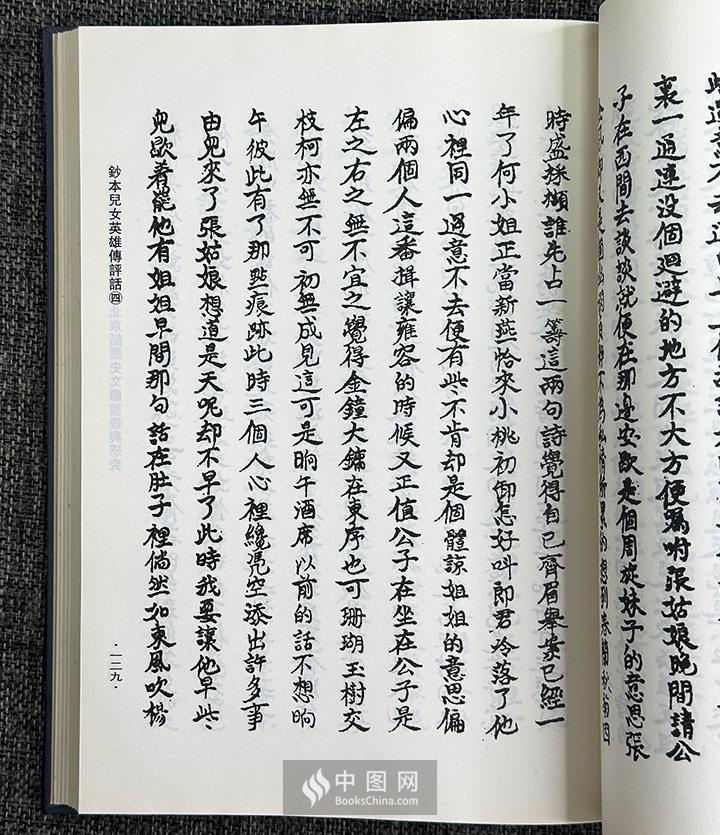 裏一通連没個迴避的地方不大方便囑咐張姑娘晚間請公
子在西間去談談就便在那邊安歇是個周旋妹子的意思張
不為私情所累的想到春蘭秋菊四
時盛採擷誰先占一籌這兩句詩覺得自已齊眉舉案已經一
年了何小姐正當新燕恰來小桃初卸怎好叫郎君冷落了他
心裡同一過意不去便有些不肯却是個體諒姐姐的意思偏
偏兩個人這番揖讓雍容的時候又正值公子在坐在公子是
左之右之無不宜之覺得金鐘大鏞在東序也可珊瑚玉樹交
枝柯亦無不可初無成見這可是晌午酒席以前的話不想晌
午彼此有了那點痕跡此時三個人心裡纔凴空添出許多事
由兒來了張姑娘想道是天呢却不早了此時我要讓他早些
兒歇着罷他有姐姐早間那句話在肚子裡倘然如東風吹楊
鈔本兒女英雄傳評話㈣
·一二九·
中图网
BooksChina.com